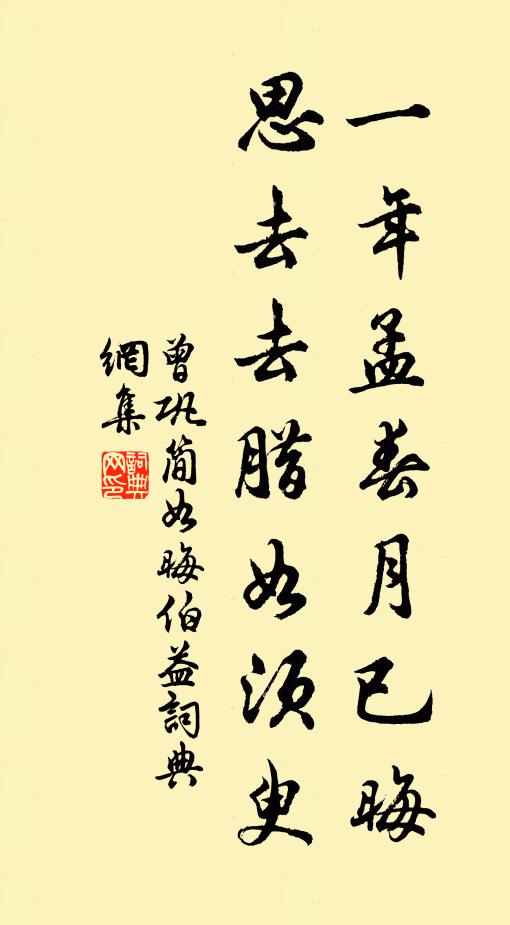 一年孟春月已晦
思去去腊如須臾
曾巩简如晦伯益詞典
網集
詞典
网印